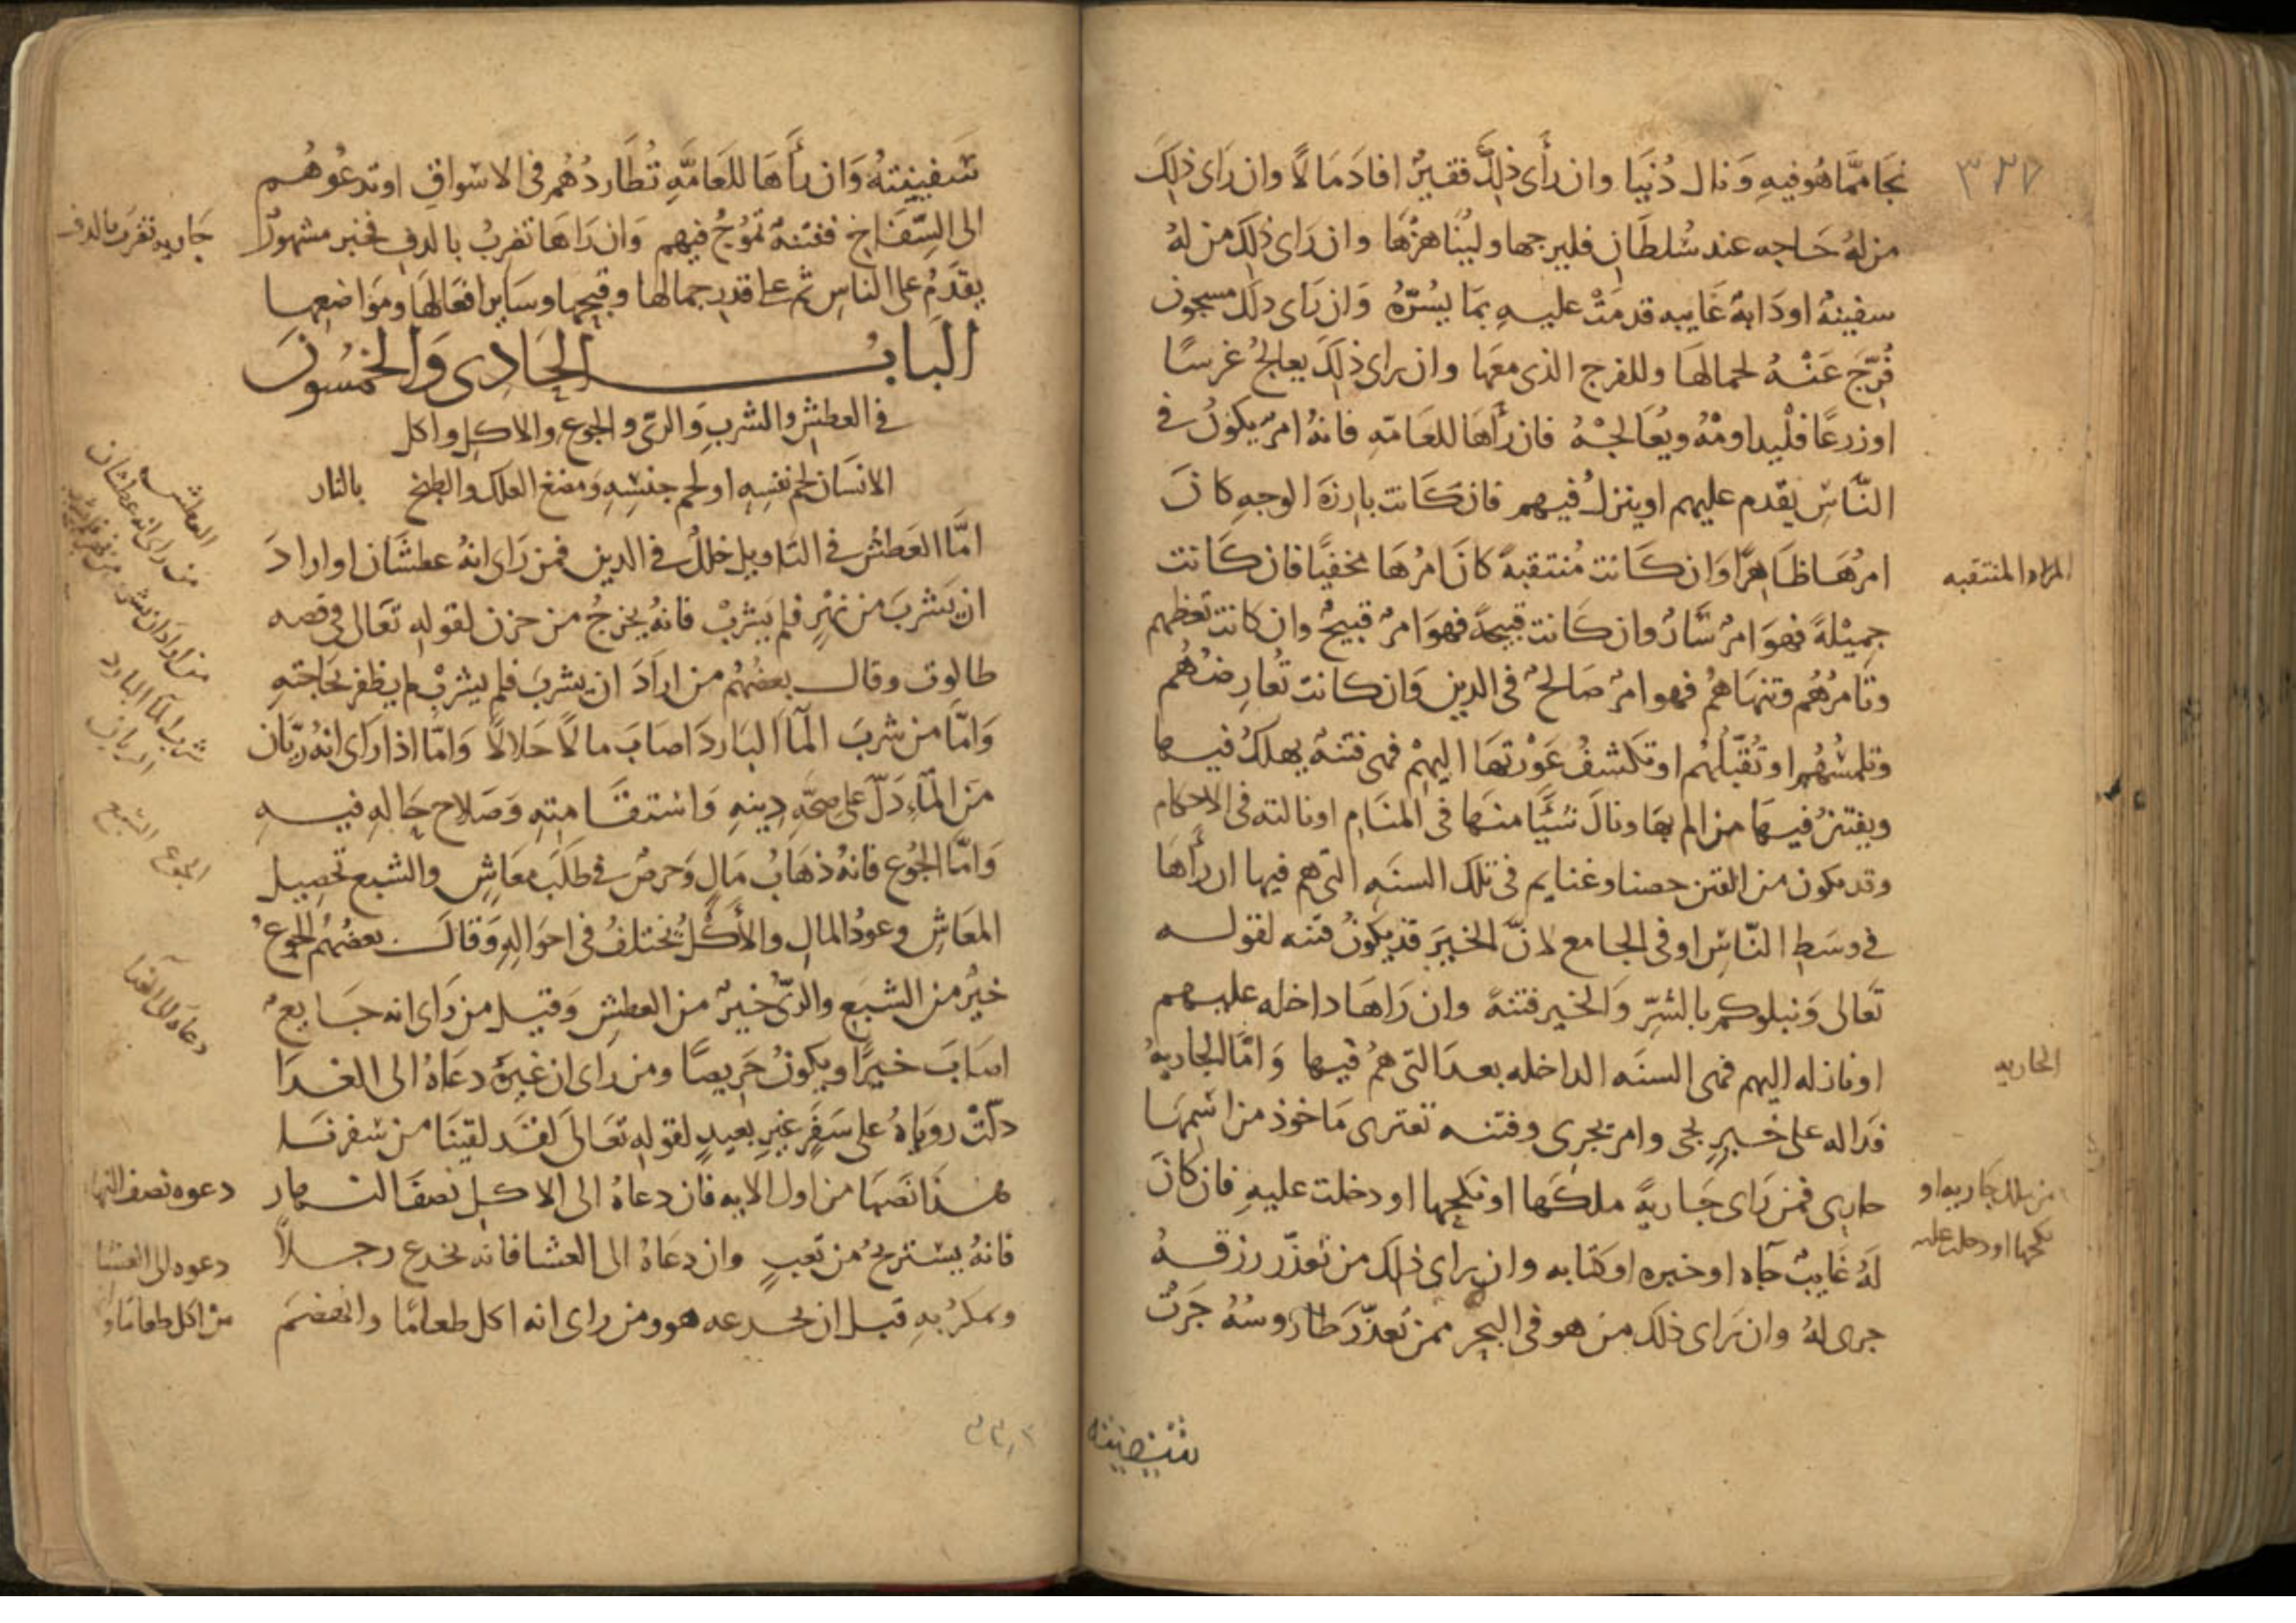 ٣٣٧
نجا مما هو فيه ونال دُنيا وان رأى ذلك فقيرٌ افاد مالًا وان راى ذلك
من لهُ حاجه عند سُلطان فليرجها وليُناهزها وان راى ذلك من لهُ
سفينهٌ او دابهٌ غايبه قدمتْ عليه بما يسُرّهُ وان راى ذلك مسجون
فُرّجَ عَنْهُ لجمالها وللفرج الذى معها وان راى ذلك يعالجُ غرسًا
او زرعًا فلْيداومْهُ ويُعالجْهُ فان رأها للعامّهِ فانهُ امرٌ يكونُ فى
النّاسِ يقدم عليهم او ينزلُ فيهم فان كانت بارزةَ الوجهِ كانَ
امرُها ظاهرًا وان كانت مُنتقبهً كانَ امرُها مخفيًّا فان كانت
المراه المنتقبه
جميْلةً فهو امرٌ سَّارٌ وان كانت قبيحةً فهو امرٌ قبيحٌ وان كانت تعظهم
وتامرُهُم وتنهاهُم فهو امرٌ صالحٌ فى الدين وان كانت تُعارضُهُم
وتلمسُهُم او تُقبّلُهُم او تكشفُ عَوْرتها اليهمْ فهى فتنهٌ يهلكُ فيها
ويفتتنُ فيها من الم بها ونالَ شيًّا منها فى المنام او نالته فى الاحكام
وقد يكون من الفتن حصنا وغنايم فى تلك السنه التى هم فيها ان رأها
فى وسَطِ النّاسِ او فى الجامع لانّ الخيرَ قد يكونُ فتنه لقوله
تعالى ونبلوكم بالشرّ والخير فتنةً وان راها داخله عليهم
او نازله اليهم فهى السنَه الداخله بعدَ التى هُم فيها وامّا الجاريهُ
الجاريه
فداله على خيرٍ يجى وامرٍ يجرى وفتنه تعترى ماخوذ من اسمها
جارى فمن راى جاريةً ملكها او نكحها او دخلت عليهِ فان كانَ
من ملك جاريه او
نكحها او دخلت عليه
لهُ غايبٌ جآه او خبره او كتابه وان راى ذلك من تعذّر رزقهُ
جرى لهُ وان راى ذلك من هو فى البحر ممن تعذّرَ طاروسُهُ جَرَتْ
سفينته
سفينتهُ وان رأها للعامّهِ تُطاردُهُم فى الاسواقِ او تدعُوهُم
الى السِّفاح ففتنهٌ تموُجُ فيهم وان راها تضربُ بالدفِ فخبر مشهورٌ
جاريه تضرب بالدف
يقدَمُ على الناسِ ثم على قدرِ جمالها وقبحها وساير افعالها ومواضعها
البابُ الحادى والخمسُونَ
فى العطشِ والشربِ والرىّ والجوعِ والاكلِ واكل
الانسان لحم نفسِهِ او لحم جنسِهِ ومضغ العلك والطبخ بالنار
امّا العَطشُ فى التاويل خللٌ فى الدين فمن راى انهُ عطشان او ارادَ
العطش
من راى انه عطشان
ان يشربَ من نهْرٍ فلم يشربْ فانهُ يخرجُ من حزن لقوله تعالى فى قصه
طالوت وقال بعضُهُم من ارادَ ان يشربَ فلم يشربْ لم يظفر بحاجتهِ
وامّا من شربَ المآ الباردَ اصابَ مالًا حلالًا وامّا اذا راى انهُ ريّان
شرب المآ البارد
الريان
منَ المآءِ دَلّ على صحّهِ دِينهِ واستقامتِهِ وصلاحِ حالهِ فيهِ
وامّا الجُوع فانهُ ذهابُ مالٍ وحرصٌ فى طلَبِ معاشٍ والشبع تحصيل
الجوع الشبع
المعَاشِ وعودُ المالِ والأكلُ يختلفُ فى احوالِهِ وقال بعضُهُم الجوعُ
خيرٌ من الشبَع والرىُّ خيرٌ من العطشِ وقيل من راى انه جايعٌ
اصابَ خيرًا ويكونُ حريصًا ومن راى ان غيرَهُ دعاهُ الى الغدَا
دعاه الى الغدا
دلّتْ روياهُ على سَفَرٍ غيرِ بعيدٍ لقولهِ تعالىَ لقد لقينَا من سفرنا
هذا نَصَبا من اول الايه فان دعاهُ الى الاكل نصفَ النهار
دعوه نصف النهار
فانهُ يستريحُ من تعبٍ وان دعاهُ الى العشا فانه يخدع رجلًا
دعوه الى العشا
ويمكرُ بهِ قبل ان يخدعه هو ومن راى انه اكل طعامًا وانهضمَ
من اكل طعامًا